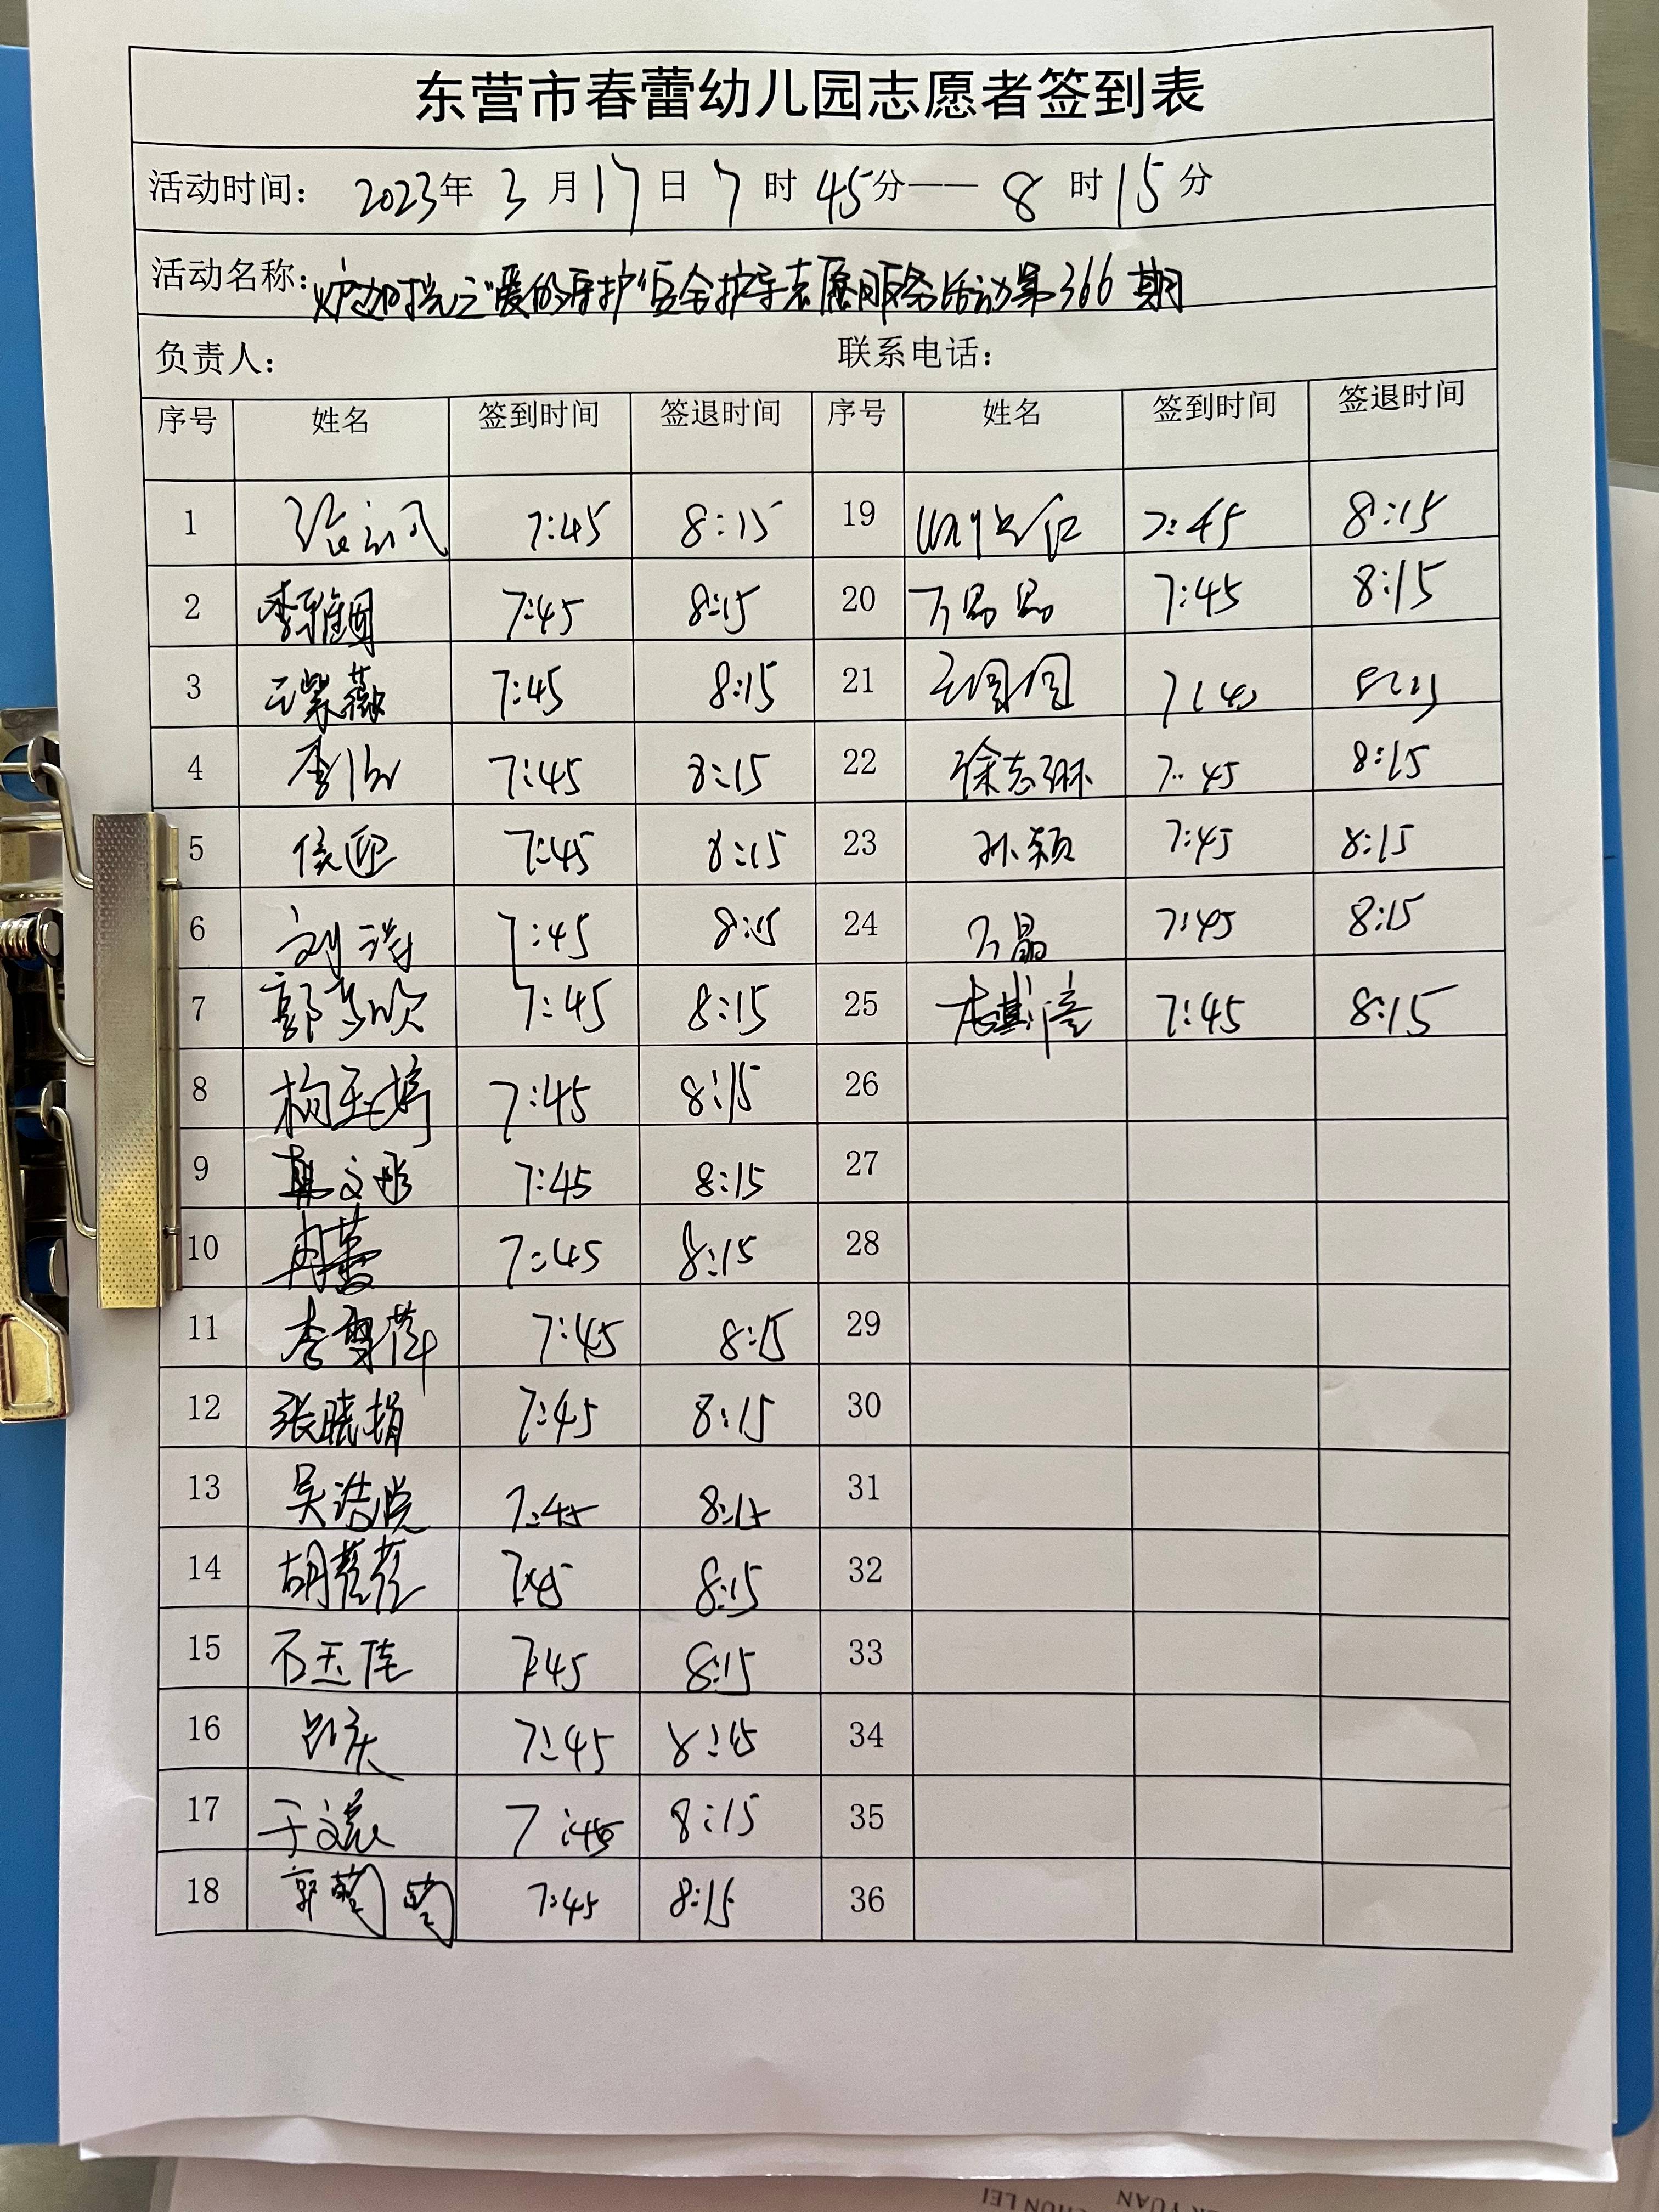 东营市春蕾幼儿园志愿者签到表
活动时间: 2023年 3 月 17 日 7 时 45分——8 时 15 分
活动名称: 炉边时光之"爱的守护"安全护导志愿服务活动第366期
负责人: 联系电话:
序号 姓名 签到时间 签退时间 序号 姓名 签到时间 签退时间
1 7:45 8:15 19 7:45 8:15
2 李雅图 7:45 8:15 20 万晶晶 7:45 8:15
3 王紫薇 7:45 8:15 21 7:45 8:15
4 李怡 7:45 8:15 22 徐志琳 7:45 8:15
5 侯迎 7:45 8:15 23 孙颖 7:45 8:15
6 刘洋 7:45 8:15 24 万晶 7:45 8:15
7 郭梦欣 7:45 8:15 25 7:45 8:15
8 杨玉婷 7:45 8:15 26
9 韩文彤 7:45 8:15 27
10 冉蕾 7:45 8:15 28
11 李雪萍 7:45 8:15 29
12 张晓娟 7:45 8:15 30
13 吴浩悦 7:45 8:15 31
14 胡蓉蓉 7:45 8:15 32
15 石玉佳 7:45 8:15 33
16 吕庆 7:45 8:15 34
17 于文 7:45 8:15 35
18 郭萌萌 7:45 8:15 36
YUAN
CHUN LEI